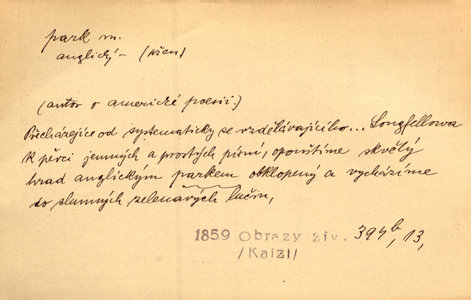 park m.
anglický – (přen)
(autor o americké poesii.)
Přicházejíce od systematicky se vzdělávajícího... Longfellowa
k pěvci jemných a prostých písní, opouštíme skvělý
hrad anglickým parkem obklopený a vycházíme
do slunných zelenavých lučin,
1859 Obrazy živ. 394b, 13,
/Kaizl/